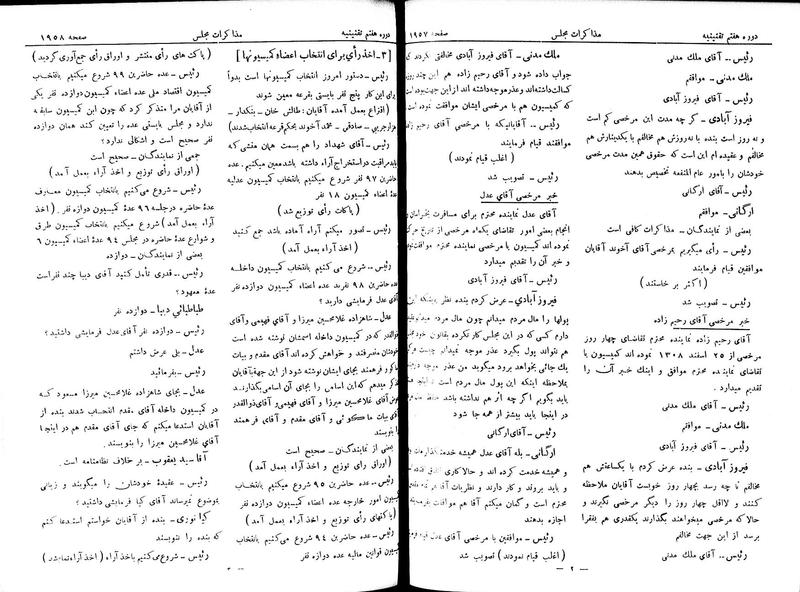 دوره هفتم تقنینیه
مذاکرات مجلس
صفحه ۱۹۵۷
رئیس ـ آقای ملك مدنی
ملك مدنی ـ موافقم
رئیس ـ آقای فیروز آبادی
فیروز آبادی ـ گر چه مدت این مرخصی کم است
و نه روز است بنده با نه‌روزش هم مخالفم با یکدینارش هم
مخالفم و عقیده ام این است که حقوق همین مدت مرخصی
خودشان را بامور عام المنفعه تخصیص بدهند
رئیس ـ آقای ارگانی
ارگانی ـ موافقم
بعضی از نمایندگان ـ مذاکرات کافی است
رئیس ـ رأی میگیریم بمرخصی آقای آخوند آقایان
موافقین قیام فرمایند
( اکثر بر خاستند )
رئیس ـ تصویب شد
خبر مرخصی آقای رحیم زاده
آقای رحیم زاده نماینده محترم تقاضای چهار روز
مرخصی از ۲۵ اسفند ۱۳۰۸ نموده اند کمیسیون با
تقاضای نماینده محترم موافق و اینك خبر آن را
تقدیم میدارد .
رئیس ـ آقای ملك مدنی
ملك مدنی ـ موافقم
رئیس ـ آقای فیروز آبادی
فیروز آبادی ـ بنده عرض کردم با یکساعتش هم
مخالفم تا چه رسد بچهار روز خوبست آقایان ملاحظه
کنند و لااقل چهار روز را دیگر مرخصی نگیرند و
حالا که مرخصی میخواهند بگذارند یکقدری هم بفقرا
برسد از این جهت مخالفم
رئیس ـ آقای ملك مدنی
ملك مدنی ـ آقای فیروز آبادی مخالفتی نکردند که
جواب داده شود و آقای رحیم زاده هم این چند روز
کسالت داشته‌اند و عذر موجه داشته اند از این جهت بوده است
که کمیسیون هم با مرخصی ایشان موافقت نموده است
رئیس ـ آقایانیکه با مرخصی آقای رحیم زاده
موافقند قیام فرمایند
( اغلب قیام نمودند )
رئیس ـ تصویب شد
خبر مرخصی آقای عدل
آقای عدل نماینده محترم برای مسافرت بخراسان و
انجام بعضی امور تقاضای یکماه مرخصی از تاریخ حرکت
نموده اند کمیسیون با مرخصی نماینده محترم موافقت نموده
و خبر آن را تقدیم میدارد
رئیس ـ آقای فیروز آبادی
فیروز آبادی ـ عرض کردم بنده نظر باینکه این
پولها را مال مردم میدانم چون مال مردم میدانم
دارم کسی که در این مجلس کار نکرده بقانون خود
هم نتواند پول بگیرد عذر موجه نمیدانم چیست هر کس
یك جائی بخواهد برود میگوید من عذر موجه دارم
بملاحظه اینکه این پول مال مردم است
باید بگویم اگر چه اثر هم نداشته باشد
در اینجا باید بیشتر از همه جا شود
رئیس ـ آقای ارگانی
ارگانی ـ بله آقای عدل همیشه خدمت
و همیشه خدمت کرده اند و حالا کاری
و باید بروند و کار دارند و نظریات آقا هم
محترم است و گمان میکنم آقا هم موافقت بفرمایند
اجازه بدهند
رئیس ـ موافقین با مرخصی آقای عدل قیام
( اغلب قیام نمودند ) تصویب شد
ـ ۲ ـ
صفحه ۱۹۵۸
مذاکرات مجلس
دوره هفتم تقنینیه
[ ۳ ـ اخذ رأی برای انتخاب اعضاء کمیسیونها ]
رئیس ـ دستور امروز انتخاب کمیسیونها است بدواً
برای این کار پنج نفر بایستی بقرعه معین شوند
( اقتراع بعمل آمده آقایان : طالش خان ـ بنکدار ـ
هزارجریبی ـ صادقی ـ محمد آخوند بحکم قرعه انتخاب شدند)
رئیس ـ آقای شهداد را هم بسمت همان منشی که
باید مراقبت در استخراج آراء داشته باشد معین میکنیم . عده
حاضرین ۹۷ نفر شروع میکنیم بانتخاب کمیسیون عدلیه
عدۀ اعضاء کمیسیون ۱۸ نفر
( پاکات رأی توزیع شد )
رئیس ـ تصور میکنم آراء آماده باشد جمع کنید
( اخذ آراء بعمل آمد )
رئیس ـ شروع می کنیم بانتخاب کمیسیون داخله
عده حاضرین ۹۸ نفرند عده اعضاء کمیسیون دوازده نفر
آقای عدل فرمایشی دارید ؟
عدل ـ شاهزاده غلامحسین میرزا و آقای فهیمی و آقای
ذوالقدر که در کمیسیون داخله اسمشان نوشته شده است
خودشان منصرفند و خواهش کرده اند آقای مقدم و بیات
ماکو و فرهمند بجای ایشان نوشته شود از این جهة بآقایان
تذکر میدهم که این اسامی را بجای آن اسامی بگذارند
عوض آقای غلامحسین میرزا و آقای فهیمی و آقای ذوالقدر
آقای بیات ماکوئی و آقای مقدم و آقای فرهمند
را بنویسند
بعضی از نمایندگان ـ صحیح است
( اوراق رأی توزیع و اخذ آراء بعمل آمد )
رئیس ـ عده حاضرین ۹۵ شروع میکنیم بانتخاب
کمیسیون امور خارجه عده اعضاء کمیسیون دوازده نفر
( پاکتهای رأی توزیع و اخذ آراء بعمل آمد )
رئیس ـ عده حاضرین ۹۴ شروع می کنیم بانتخاب
کمیسیون قوانین مالیه عده دوازده نفر
( پاکت های رأی منتشر و اوراق رأی جمع‌آوری گردید )
رئیس ـ عده حاضرین ۹۹ شروع میکنیم بانتخاب
کمیسیون اقتصاد ملی عده اعضاء کمیسیون دوازده نفر یکی
از آقایان مرا متذکر کرد که چون این کمیسیون سابقه
ندارد و مجلس بایستی عده را تعیین کند همان دوازده
نفر صحیح است و اشکالی ندارد ؟
جمعی از نمایندگان ـ صحیح است
( اوراق رأی توزیع و اخذ آراء بعمل آمد )
رئیس ـ شروع می‌کنیم بانتخاب کمیسیون معارف
عدۀ حاضره در جلسه ۹۶ عدۀ کمیسیون دوازده نفر . ( اخذ
آراء بعمل آمد ) شروع میکنیم بانتخاب کمیسیون طرق
و شوارع عدۀ حاضره در مجلس ۹۴ عدۀ اعضاء کمیسیون ۶
بعضی از نمایندگان ـ دوازده
رئیس ـ قدری تأمل کنید آقای دیبا چند نفر است
عدۀ معهود ؟
طباطبائی دیبا ـ دوازده نفر
رئیس ـ دوازده نفر آقای عدل فرمایشی داشتید ؟
عدل ـ بلی عرض داشتم
رئیس ـ بفرمائید
عدل ـ بجای شاهزاده غلامحسین میرزا مسعود که
در کمیسیون داخله آقای مقدم انتخاب شدند بنده از
آقایان استدعا میکنم که جای آقای مقدم هم در اینجا
آقای غلامحسین میرزا را بنویسند
آقا سید یعقوب ـ بر خلاف نظامنامه است .
رئیس ـ عقیدۀ خودشان را میگویند و زیانی
بموضوع نمیرساند آقای کیا فرمایشی داشتید ؟
کیا نوری ـ بنده از آقایان خواستم استدعا کنم
که بنده را ننویسند
رئیس ـ شروع می‌کنیم باخذ آراء ( اخذ آراء نماینده شد )
ـ ۳ ـ